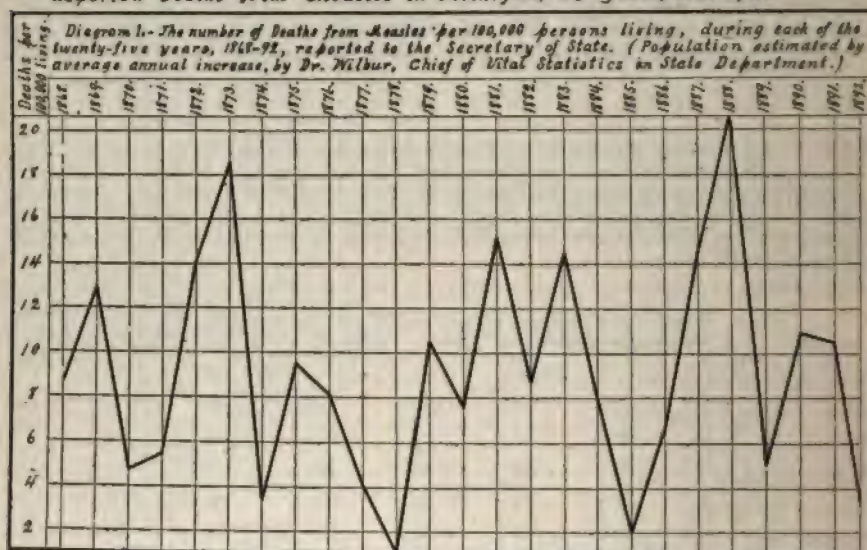 Reported Deaths from Measles in
Diagram 1.- The number of Deaths from Measles per 100,000 persons living, during each of the
twenty-five years, 1868-92, reported to the Secretary of State. (Population estimated by
average annual increase, by Dr. Wilbur, Chief of Vital Statistics in State Department.)
Deaths per
100,000 living.
1868. 1869. 1870. 1871. 1872. 1873. 1874. 1875. 1876. 1877. 1878. 1879. 1880. 1881. 1882. 1883. 1884. 1885. 1886. 1887. 1888. 1889. 1890. 1891. 1892.
20
18
16
14
12
10
8
6
4
2